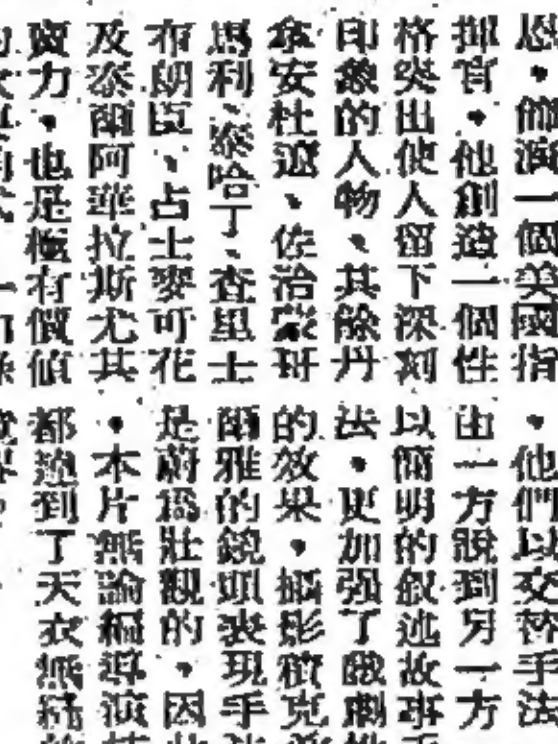 飾演一個美國指
揮官，他創造一個性
格突出使人留下深刻
印象的人物、其餘丹
拿安杜遜、佐治
馬利、泰哈丁、查里士
布朗臣、占士麥可花
及泰爾阿華拉斯尤其
賣力，也是極有價值
，他們以交替手法
由一方說到另一方
以簡明的叙述故事
法，更加强了戲劇
的效果，攝影積克
爾雅的鏡頭表現手
是蔚爲壯觀的，因
，本片無論編導演
都達到了天衣無縫